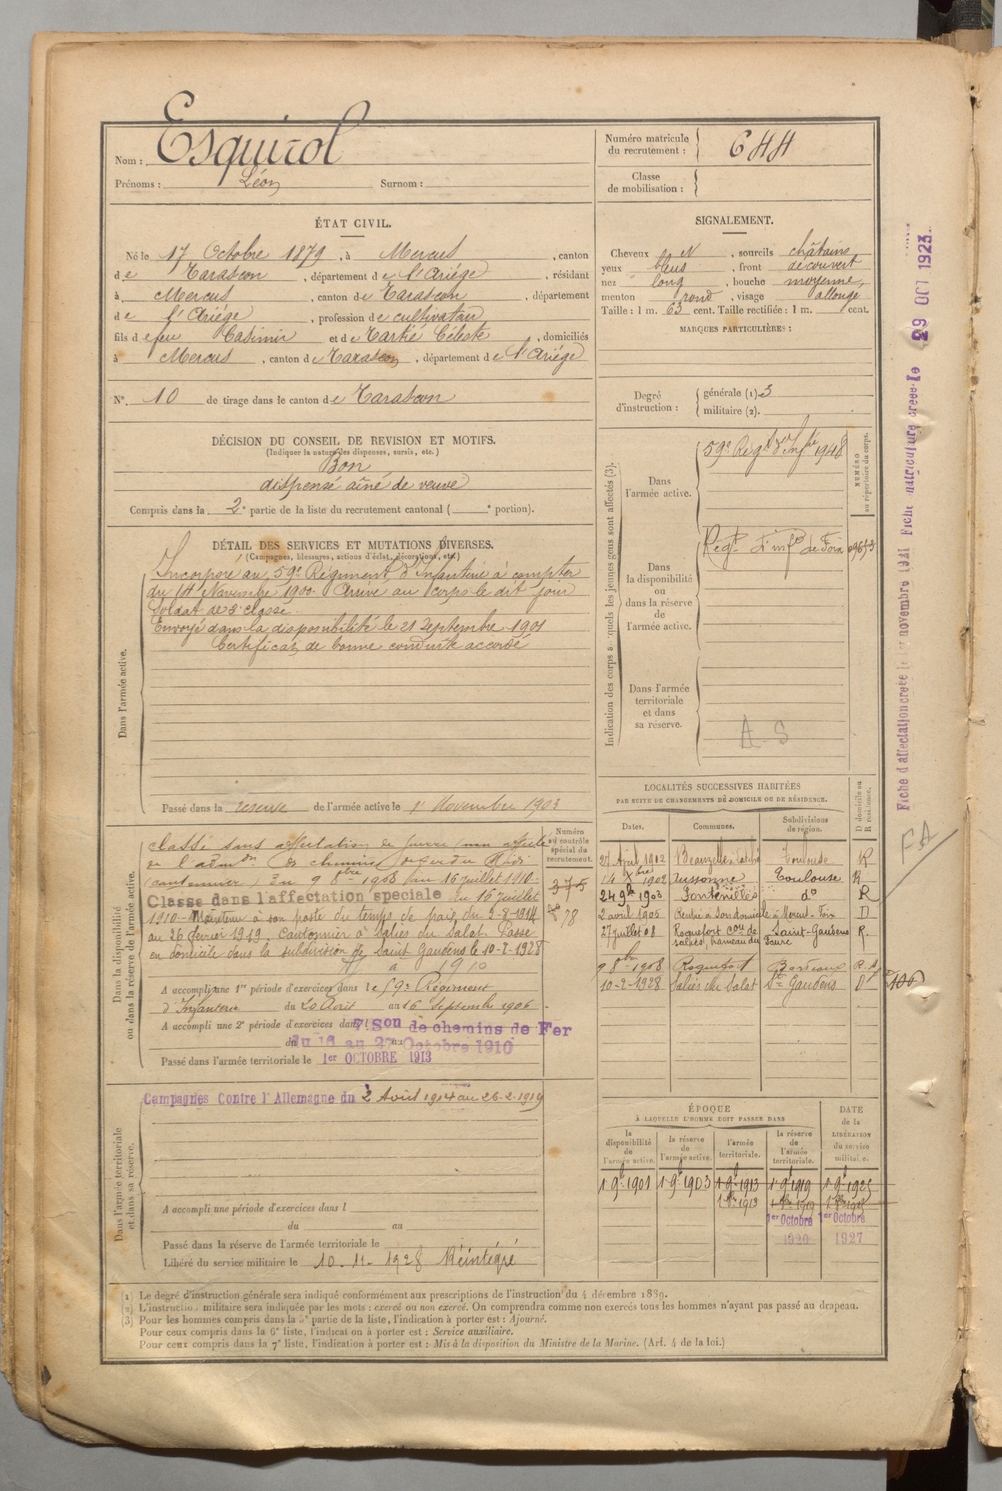 Nom : Esquirol
Prénoms : Léon Surnom :
Numéro matricule du recrutement : 644
Classe de mobilisation :
ÉTAT CIVIL.
Né le 17 Octobre 1879, à Mercus, canton
de Tarascon, département de l'Ariége, résidant
à Mercus, canton de Tarascon, département
de l'Ariége, profession de cultivateur
fils de feu Casimir et de Tartié Céleste, domiciliés
à Mercus, canton de Tarascon, département de l'Ariége
N° 10 de tirage dans le canton de Tarascon
SIGNALEMENT.
Cheveux N, sourcils châtains
yeux bleus, front découvert
nez long, bouche moyenne,
menton rond, visage allongé
Taille : 1 m. 63 cent. Taille rectifiée : 1 m. cent.
MARQUES PARTICULIÈRES :
Degré d'instruction : générale (1) 3
militaire (2).
DÉCISION DU CONSEIL DE REVISION ET MOTIFS.
(Indiquer la nature des dispenses, sursis, etc.)
Bon
dispensé aîné de veuve
Compris dans la 2e partie de la liste du recrutement cantonal ( e portion).
DÉTAIL DES SERVICES ET MUTATIONS DIVERSES.
(Campagnes, blessures, actions d'éclat, décorations, etc.)
Dans l'armée active.
Incorporé au 59e Régiment d'Infanterie à compter
du 14 Novembre 1900. Arrivé au corps le dit jour
Soldat de 2e classe.
Envoyé dans la disponibilité le 21 Septembre 1901
Certificat de bonne conduite accordé
Passé dans la réserve de l'armée active le 1er Novembre 1903
Indication des corps auxquels les jeunes gens sont affectés (3).
NUMÉRO au répertoire du corps.
Dans l'armée active.
59e Régt d'Infie 1948
Dans la disponibilité ou dans la réserve de l'armée active.
Régt d'Infie de Foix
Dans l'armée territoriale et dans sa réserve.
A-S
Dans la disponibilité ou dans la réserve de l'armée active.
Numéro au contrôle spécial du recrutement.
375
78
Classé sans affectation
Classé dans l'affectation spéciale du 16 juillet
1910 - Maintenu à son poste du temps de paix du 2-8-1914
au 26 février 1919. Cantonnier à Salies du Salat. Passé
en domicile dans la subdivision de Saint Gaudens le 10-2-1928
A accompli une 1re période d'exercices dans le 59e Régiment
d'Infanterie du 20 Août au 16 Septembre 1906
A accompli une 2e période d'exercices dans 7e Son de chemins de Fer
du 16 au 27 Octobre 1910
Passé dans l'armée territoriale le 1er OCTOBRE 1913
LOCALITÉS SUCCESSIVES HABITÉES
PAR SUITE DE CHANGEMENTS DE DOMICILE OU DE RÉSIDENCE.
Dates. Communes. Subdivisions de région. D domicile ou R résidence.
27 Avril 1902 Beauzelle Toulouse R
14 Xbre 1902 Aussonne Toulouse R
24 9bre 1903 Fontenilles do R
2 août 1905 Rentré à son domicile à Mercus - Foix D
27 juillet 08 Roquefort Saint-Gaudens R.
9 8bre 1908 Roquefort
10-2-1928 Salies du Salat St Gaudens D
Dans l'armée territoriale et dans sa réserve.
Campagnes Contre l'Allemagne du 2 Août 1914 au 26-2-1919
A accompli une période d'exercices dans l
du au
Passé dans la réserve de l'armée territoriale le
Libéré du service militaire le 10-11-1928 Réintégré
ÉPOQUE
A LAQUELLE L'HOMME DOIT PASSER DANS
la disponibilité de l'armée active. la réserve de l'armée active. l'armée territoriale. la réserve de l'armée territoriale. DATE de la LIBÉRATION du service militaire.
1 9b 1901 1 9b 1903 1 9b 1913 1 9b 1919 1 9b 1925
1er Octobre 1920 1er Octobre 1927
(1) Le degré d'instruction générale sera indiqué conformément aux prescriptions de l'instruction du 4 décembre 1889.
(2) L'instruction militaire sera indiquée par les mots : exercé ou non exercé. On comprendra comme non exercés tous les hommes n'ayant pas passé au drapeau.
(3) Pour les hommes compris dans la 5e partie de la liste, l'indication à porter est : Ajourné.
Pour ceux compris dans la 6e liste, l'indication à porter est : Service auxiliaire.
Pour ceux compris dans la 7e liste, l'indication à porter est : Mis à la disposition du Ministre de la Marine. (Art. 4 de la loi.)
Fiche d'affectation créée le 1er novembre 1921 Fiche matriculaire créée le 29 OCT 1923
FA